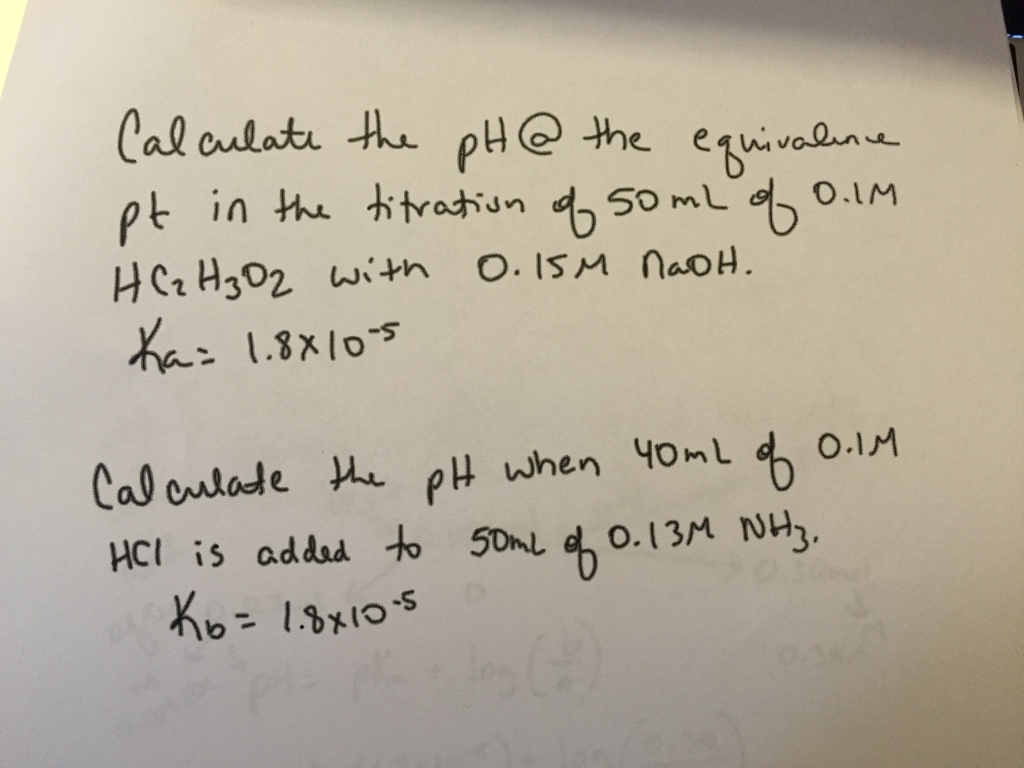 Calculate the pH @ the equivalence
pt in the titration of 50 mL of 0.1M
HC2H3O2 with 0.15M NaOH.
Ka = 1.8x10-5
Calculate the pH when 40mL of 0.1M
HCl is added to 50mL of 0.13M NH3.
Kb = 1.8x10-5
pH = pKa + log(b/a)